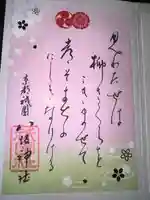 見わたせば
柳さくらを
こきまぜて
都ぞ春の
にしきなりける
京都祇園
八坂神社